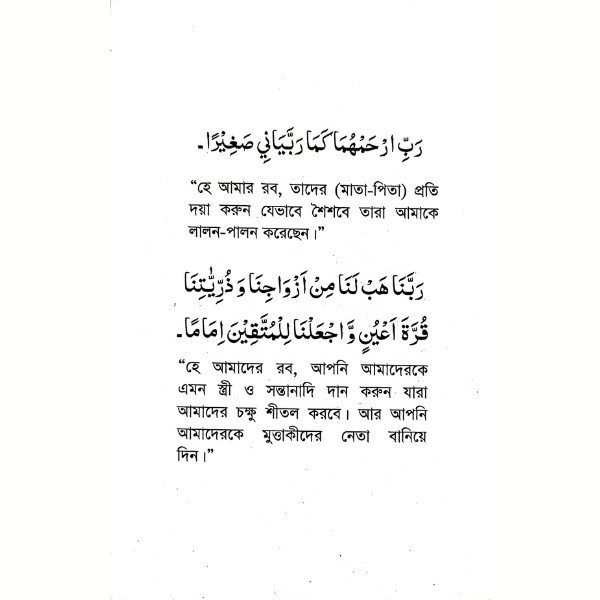 رَبِّ ارْحَمْهُمَا كَمَا رَبَّيَانِي صَغِيْرًا۔
“হে আমার রব, তাদের (মাতা-পিতা) প্রতি
দয়া করুন যেভাবে শৈশবে তারা আমাকে
লালন-পালন করেছেন।”
رَبَّنَا هَبْ لَنَا مِنْ اَزْوَاجِنَا وَ ذُرِّيّٰتِنَا
قُرَّةَ اَعْيُنٍ وَّ اجْعَلْنَا لِلْمُتَّقِيْنَ اِمَامًا۔
“হে আমাদের রব, আপনি আমাদেরকে
এমন স্ত্রী ও সন্তানাদি দান করুন যারা
আমাদের চক্ষু শীতল করবে। আর আপনি
আমাদেরকে মুত্তাকীদের নেতা বানিয়ে
দিন।”